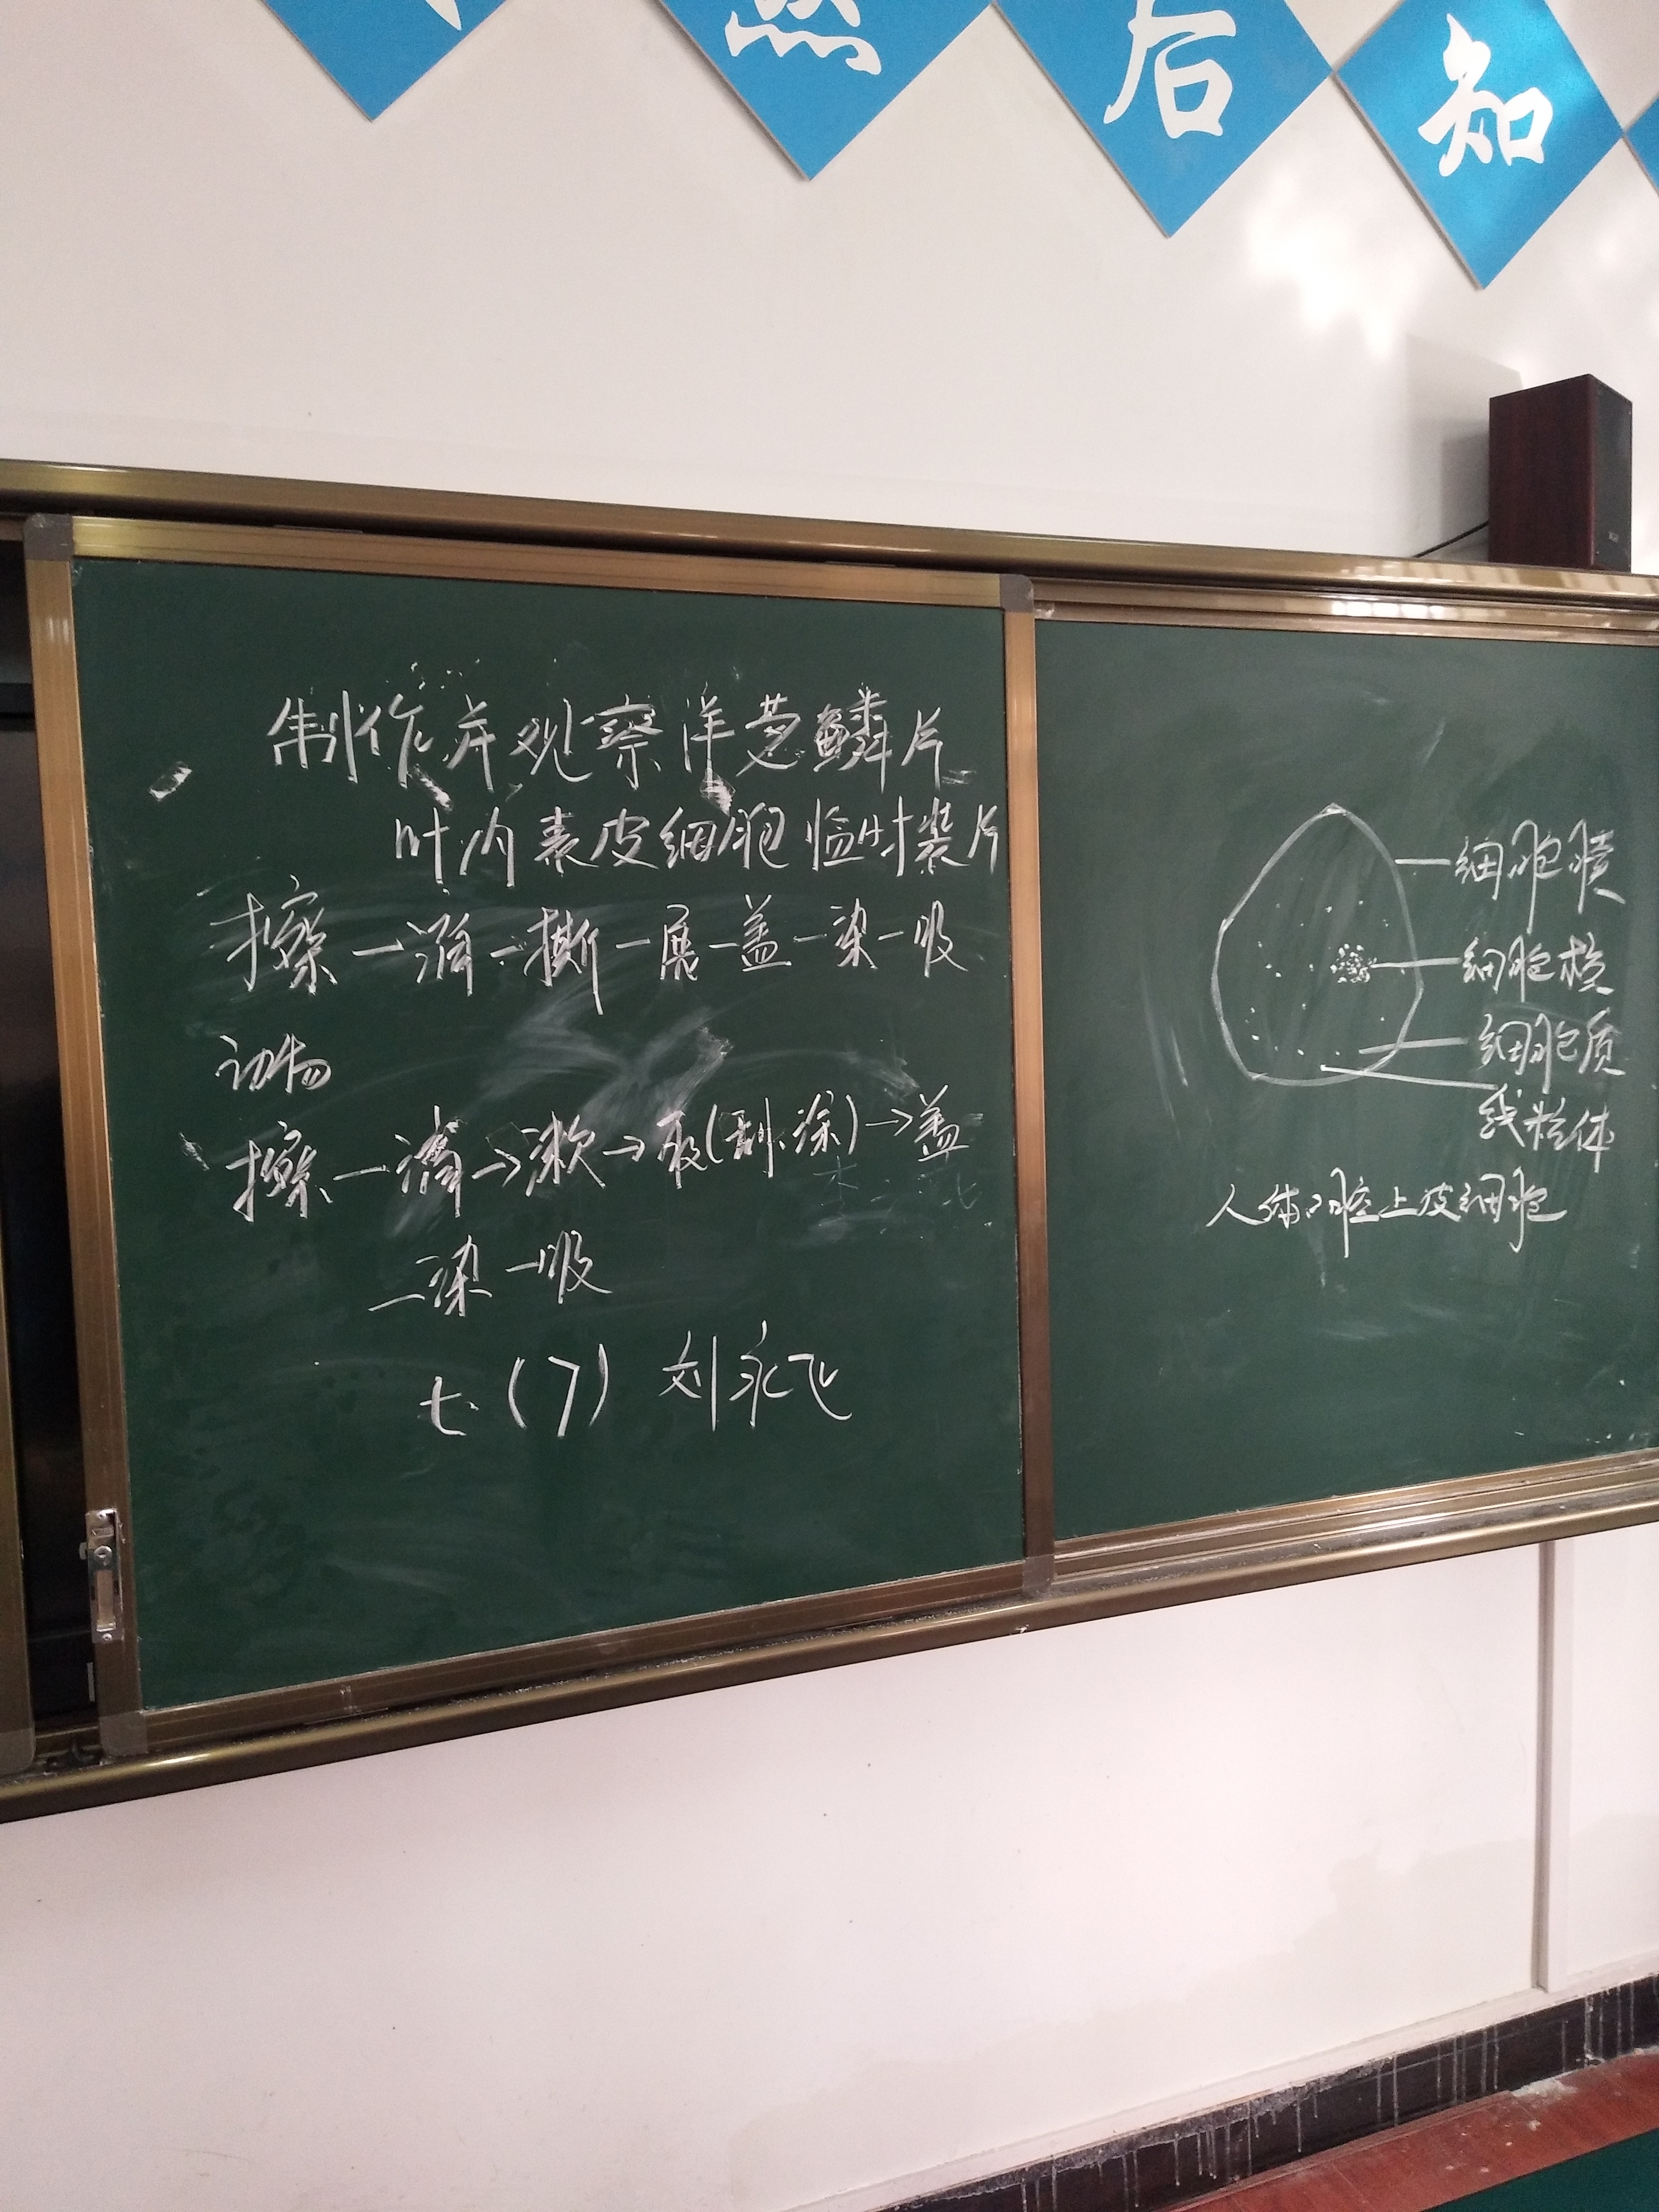 然后知
制作并观察洋葱鳞片
叶内表皮细胞临时装片
擦—滴—撕—展—盖—染—吸
动物
擦—滴→漱→取(刮、涂)→盖
—染—吸
七(7) 刘永飞
细胞膜
细胞核
细胞质
线粒体
人体口腔上皮细胞